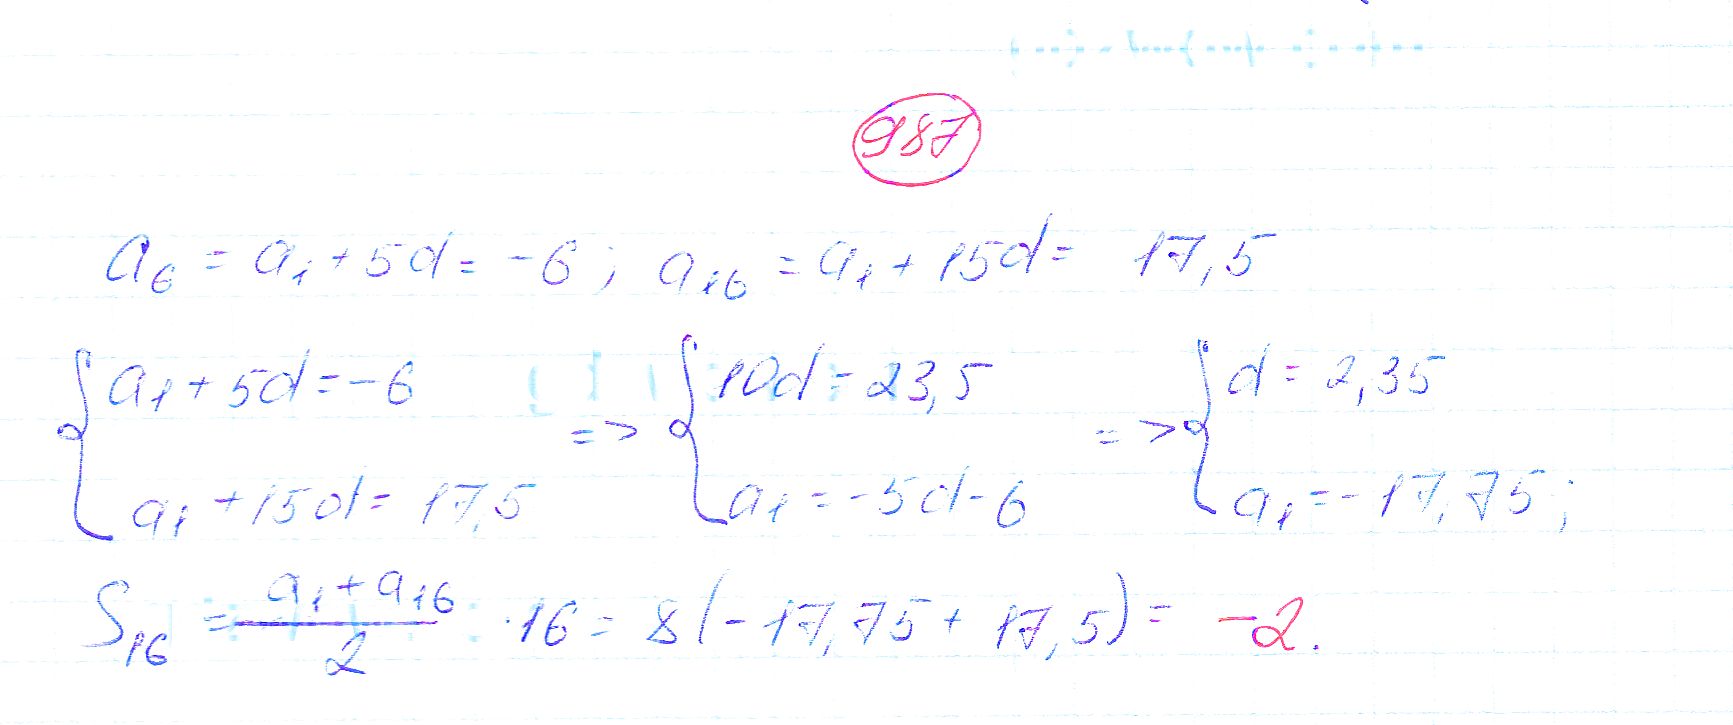 987
a₆ = a₁ + 5d = -6; a₁₆ = a₁ + 15d = 17,5
{ a₁ + 5d = -6 => { 10d = 23,5 => { d = 2,35
a₁ + 15d = 17,5 a₁ = -5d - 6 a₁ = -17,75;
S₁₆ = (a₁ + a₁₆)/2 · 16 = 8(-17,75 + 17,5) = -2.